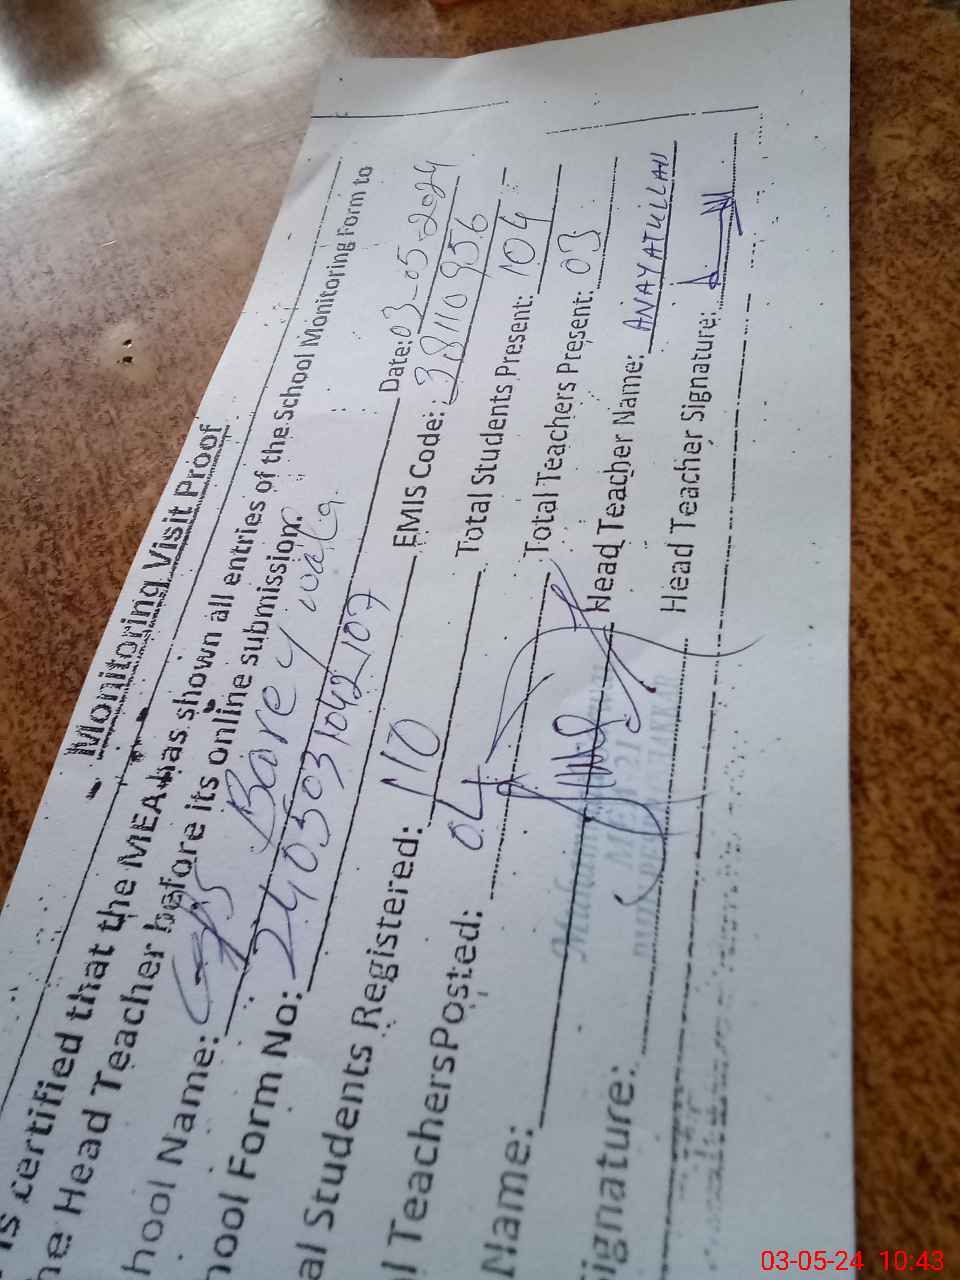 Monitoring Visit Proof
is certified that the MEA has shown all entries of the School Monitoring Form to
he Head Teacher before its online submission.
hool Name: GPS Barey wala Date: 03-05-2024
hool Form No: 2405031042107 EMIS Code: 38110956
al Students Registered: 110 Total Students Present: 104
l Teachers Posted: 04 Total Teachers Present: 03
Name: Head Teacher Name: ANAYATULLAH
Signature: Head Teacher Signature:
03-05-24 10:43